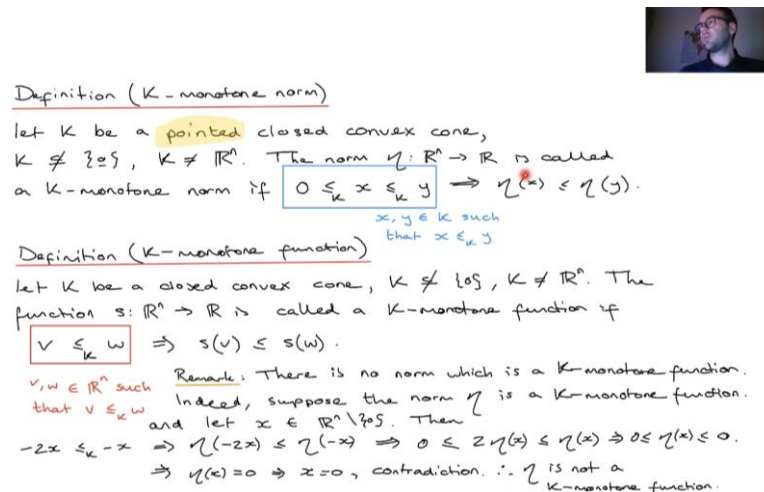 Definition (K-monotone norm)
let K be a pointed closed convex cone,
K ≠ {0}, K ≠ ℝⁿ. The norm η: ℝⁿ → ℝ is called
a K-monotone norm if 0 ≤_K x ≤_K y ⟹ η(x) ≤ η(y).
x, y ∈ K such
that x ≤_K y
Definition (K-monotone function)
Let K be a closed convex cone, K ≠ {0}, K ≠ ℝⁿ. The
function s: ℝⁿ → ℝ is called a K-monotone function if
v ≤_K w ⟹ s(v) ≤ s(w).
v, w ∈ ℝⁿ such
that v ≤_K w
Remark: There is no norm which is a K-monotone function.
Indeed, suppose the norm η is a K-monotone function.
and let x ∈ ℝⁿ\{0}. Then
-2x ≤_K -x ⟹ η(-2x) ≤ η(-x) ⟹ 0 ≤ 2η(x) ≤ η(x) ⟹ 0 ≤ η(x) ≤ 0.
⟹ η(x) = 0 ⟹ x = 0, contradiction. ∴ η is not a
K-monotone function.